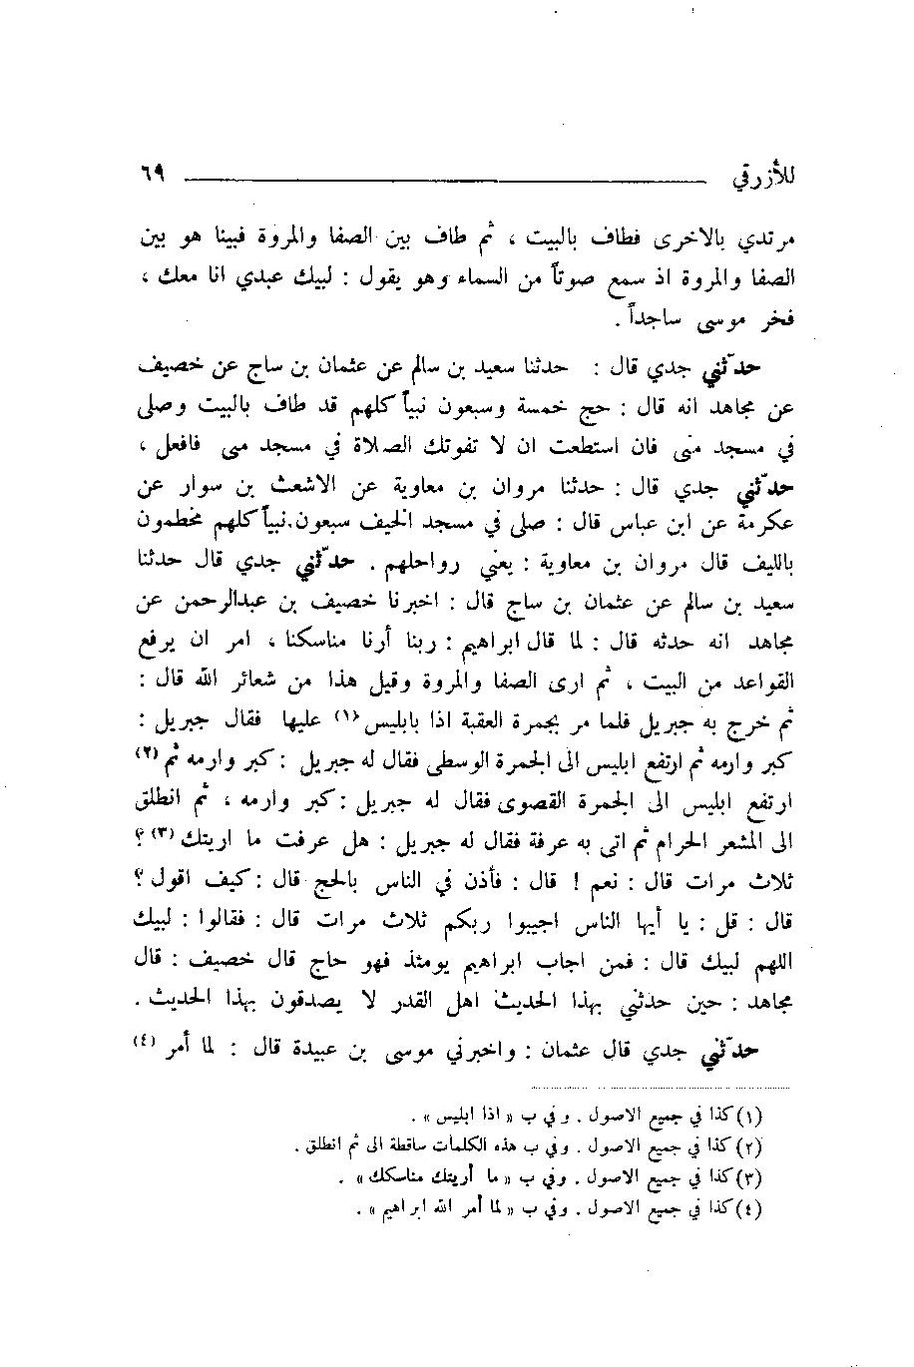 للأزرقي ٦٩
مرتدي بالاخرى فطاف بالبيت ، ثم طاف بين الصفا والمروة فبينا هو بين
الصفا والمروة اذ سمع صوتاً من السماء وهو يقول : لبيك عبدي انا معك ،
فخر موسى ساجداً .
حدّثني جدي قال : حدثنا سعيد بن سالم عن عثمان بن ساج عن خصيف
عن مجاهد انه قال : حج خمسة وسبعون نبياً كلهم قد طاف بالبيت وصلى
في مسجد منى فان استطعت ان لا تفوتك الصلاة في مسجد منى فافعل ،
حدّثني جدي قال : حدثنا مروان بن معاوية عن الاشعث بن سوار عن
عكرمة عن ابن عباس قال : صلى في مسجد الخيف سبعون نبياً كلهم مخطمون
بالليف قال مروان بن معاوية : يعني رواحلهم . حدّثني جدي قال حدثنا
سعيد بن سالم عن عثمان بن ساج قال : اخبرنا خصيف بن عبدالرحمن عن
مجاهد انه حدثه قال : لما قال ابراهيم : ربنا أرنا مناسكنا ، امر ان يرفع
القواعد من البيت ، ثم ارى الصفا والمروة وقيل هذا من شعائر الله قال :
ثم خرج به جبريل فلما مر بجمرة العقبة اذا بابليس (١) عليها فقال جبريل :
كبر وارمه ثم ارتفع ابليس الى الجمرة الوسطى فقال له جبريل : كبر وارمه ثم (٢)
ارتفع ابليس الى الجمرة القصوى فقال له جبريل : كبر وارمه ، ثم انطلق
الى المشعر الحرام ثم اتى به عرفة فقال له جبريل : هل عرفت ما اريتك (٣) ؟
ثلاث مرات قال : نعم ! قال : فأذن في الناس بالحج قال : كيف اقول ؟
قال : قل : يا أيها الناس اجيبوا ربكم ثلاث مرات قال : فقالوا : لبيك
اللهم لبيك قال : فمن اجاب ابراهيم يومئذ فهو حاج قال خصيف : قال
مجاهد : حين حدثني بهذا الحديث اهل القدر لا يصدقون بهذا الحديث .
حدّثني جدي قال عثمان : واخبرني موسى بن عبيدة قال : لما أمر (٤)
(١) كذا في جميع الاصول . وفي ب « اذا ابليس » .
(٢) كذا في جميع الاصول . وفي ب هذه الكلمات ساقطة الى ثم انطلق .
(٣) كذا في جميع الاصول . وفي ب « ما أريتك مناسكك » .
(٤) كذا في جميع الاصول . وفي ب « لما أمر الله ابراهيم » .